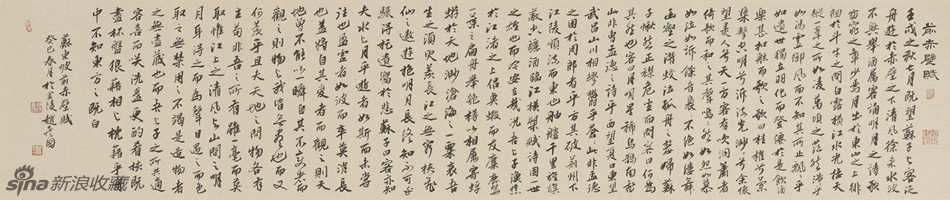 前赤壁賦
壬戌之秋七月既望蘇子與客泛
舟遊於赤壁之下清風徐來水波
不興舉酒屬客誦明月之詩歌
窈窕之章少焉月出於東山之上徘
徊於斗牛之間白露橫江水光接天
縱一葦之所如凌萬頃之茫然浩浩乎
如馮虛御風而不知其所止飄飄乎
如遺世獨立羽化而登仙於是飲酒
樂甚扣舷而歌之歌曰桂棹兮蘭
槳擊空明兮泝流光渺渺兮余懷
望美人兮天一方客有吹洞簫者
倚歌而和之其聲嗚嗚然如怨如慕
如泣如訴餘音嫋嫋不絕如縷舞
幽壑之潛蛟泣孤舟之嫠婦蘇
子愀然正襟危坐而問客曰何為
其然也客曰月明星稀烏鵲南飛
此非曹孟德之詩乎西望夏口東望
武昌山川相繆鬱乎蒼蒼此非孟德
之困於周郎者乎方其破荊州下
江陵順流而東也舳艫千里旌旗
蔽空釃酒臨江橫槊賦詩固一世
之雄也而今安在哉況吾與子漁樵
於江渚之上侶魚蝦而友麋鹿駕
一葉之扁舟舉匏樽以相屬寄蜉
蝣於天地渺滄海之一粟哀吾
生之須臾羨長江之無窮挾飛
仙以遨遊抱明月而長終知不可乎
驟得托遺響於悲風蘇子曰客亦知
夫水與月乎逝者如斯而未嘗
往也盈虛者如彼而卒莫消長
也蓋將自其變者而觀之則天
地曾不能以一瞬自其不變者而
觀之則物與我皆無盡也而又
何羨乎且夫天地之間物各有
主苟非吾之所有雖一毫而莫
取惟江上之清風與山間之明
月耳得之而為聲目遇之而成色
取之無禁用之不竭是造物者
之無盡藏也而吾與子之所共適
客喜而笑洗盞更酌肴核既
盡杯盤狼藉相與枕藉乎舟
中不知東方之既白
蘇東坡前赤壁賦
癸巳春月於金陵趙國
sina 新浪收藏